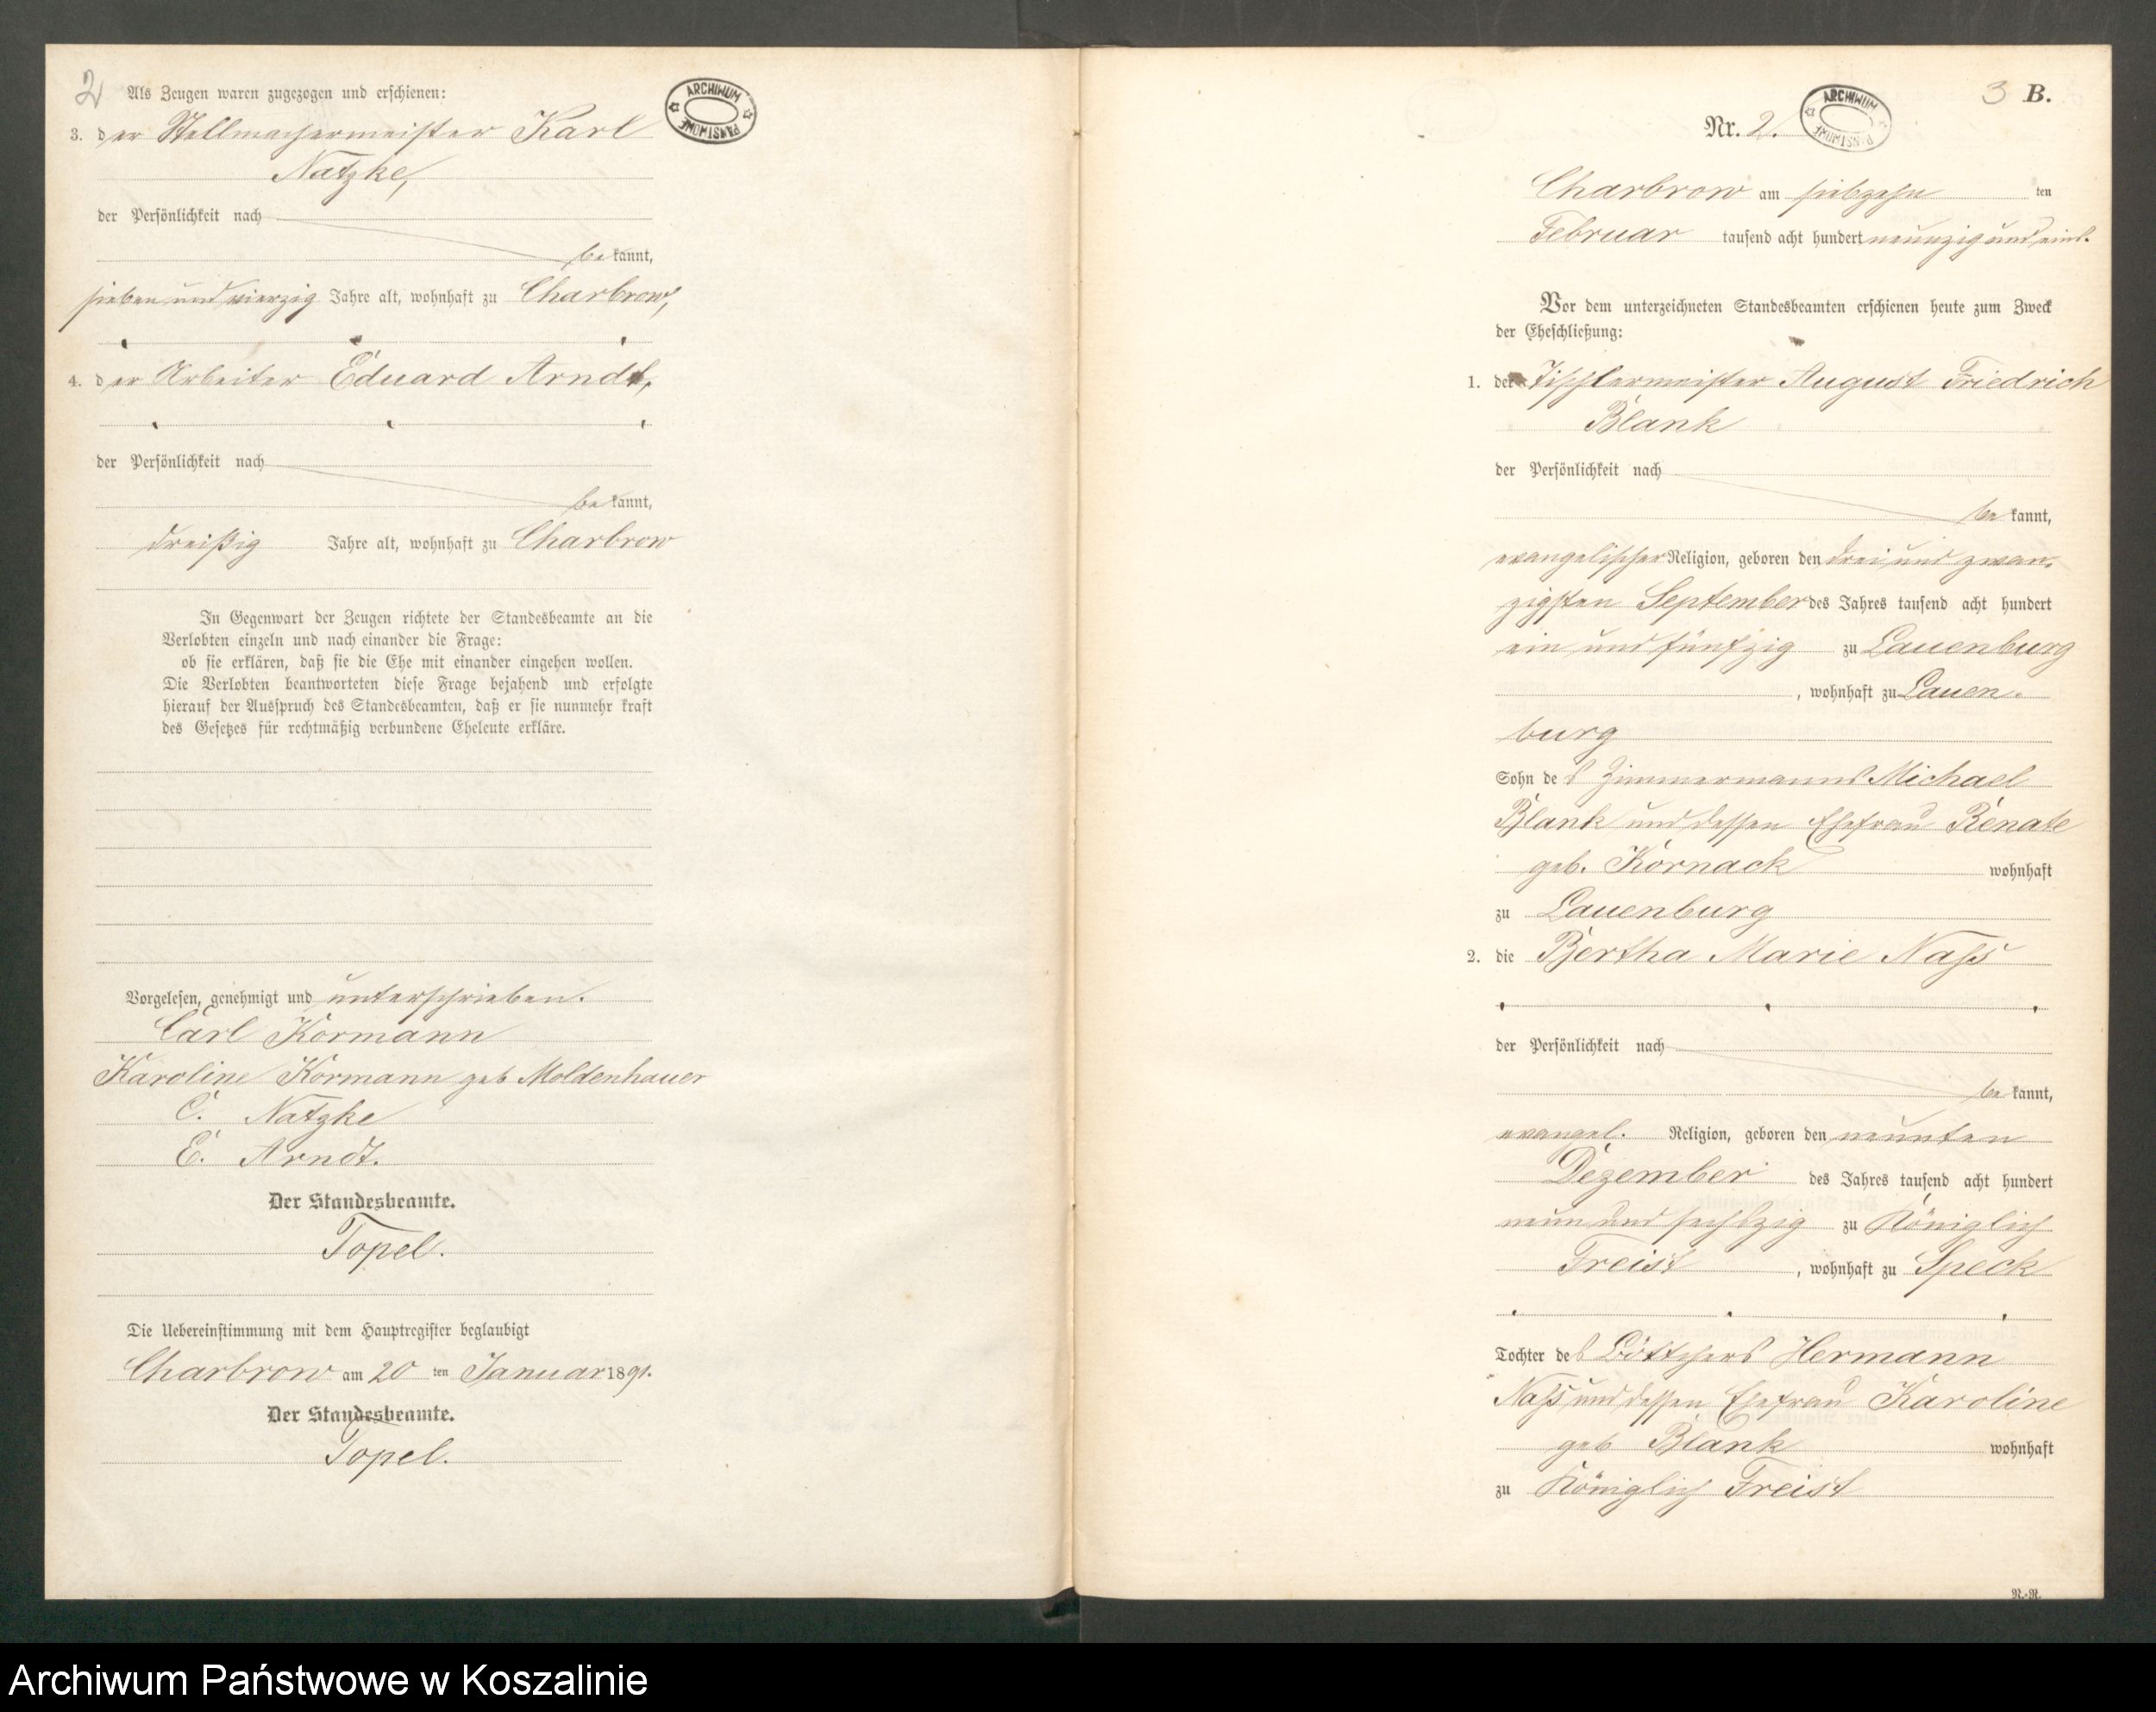 2
Als Zeugen waren zugezogen und erschienen:
ARCHIWUM PAŃSTWOWE
3. der Stellmachermeister Karl
Natzke,
der Persönlichkeit nach
bekannt,
sieben und vierzig Jahre alt, wohnhaft zu Charbrow,
4. der Arbeiter Eduard Arndt,
der Persönlichkeit nach
bekannt,
dreißig Jahre alt, wohnhaft zu Charbrow
In Gegenwart der Zeugen richtete der Standesbeamte an die
Verlobten einzeln und nach einander die Frage:
ob sie erklären, daß sie die Ehe mit einander eingehen wollen.
Die Verlobten beantworteten diese Frage bejahend und erfolgte
hierauf der Ausspruch des Standesbeamten, daß er sie nunmehr kraft
des Gesetzes für rechtmäßig verbundene Eheleute erkläre.
Vorgelesen, genehmigt und unterschrieben.
Carl Kormann
Karoline Kormann geb Moldenhauer
C. Natzke
E. Arndt.
Der Standesbeamte.
Topel.
Die Uebereinstimmung mit dem Hauptregister beglaubigt
Charbrow am 20 ten Januar 1891.
Der Standesbeamte.
Topel.
3 B.
Nr. 2.
ARCHIWUM PAŃSTWOWE
Charbrow am siebzehn ten
Februar tausend acht hundert neunzig und eins.
Vor dem unterzeichneten Standesbeamten erschienen heute zum Zweck
der Eheschließung:
1. der Tischlermeister August Friedrich
Blank
der Persönlichkeit nach
bekannt,
evangelischer Religion, geboren den drei und zwan-
zigsten September des Jahres tausend acht hundert
ein und fünfzig zu Lauenburg
, wohnhaft zu Lauen-
burg
Sohn des Zimmermanns Michael
Blank und dessen Ehefrau Renate
geb. Kornack wohnhaft
zu Lauenburg
2. die Bertha Marie Nass
der Persönlichkeit nach
bekannt,
evangel. Religion, geboren den neunten
Dezember des Jahres tausend acht hundert
neun und sechszig zu Königlich
Freist , wohnhaft zu Speck
Tochter des Böttchers Hermann
Nass und dessen Ehefrau Karoline
geb Blank wohnhaft
zu Königlich Freist
N.-N.
Archiwum Państwowe w Koszalinie